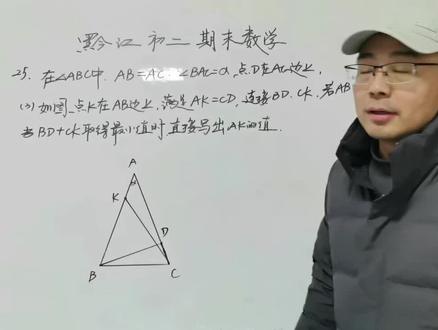 黔江初二期末数学
25. 在∠ABC中. AB=AC. ∠BAC=α, 点D在AC边上,
(3)如图, 点K在AB边上, 满足AK=CD, 连接BD. CK, 若AB
当BD+CK取得最小值时直接写出AK的值.
A
α
K
D
B
C